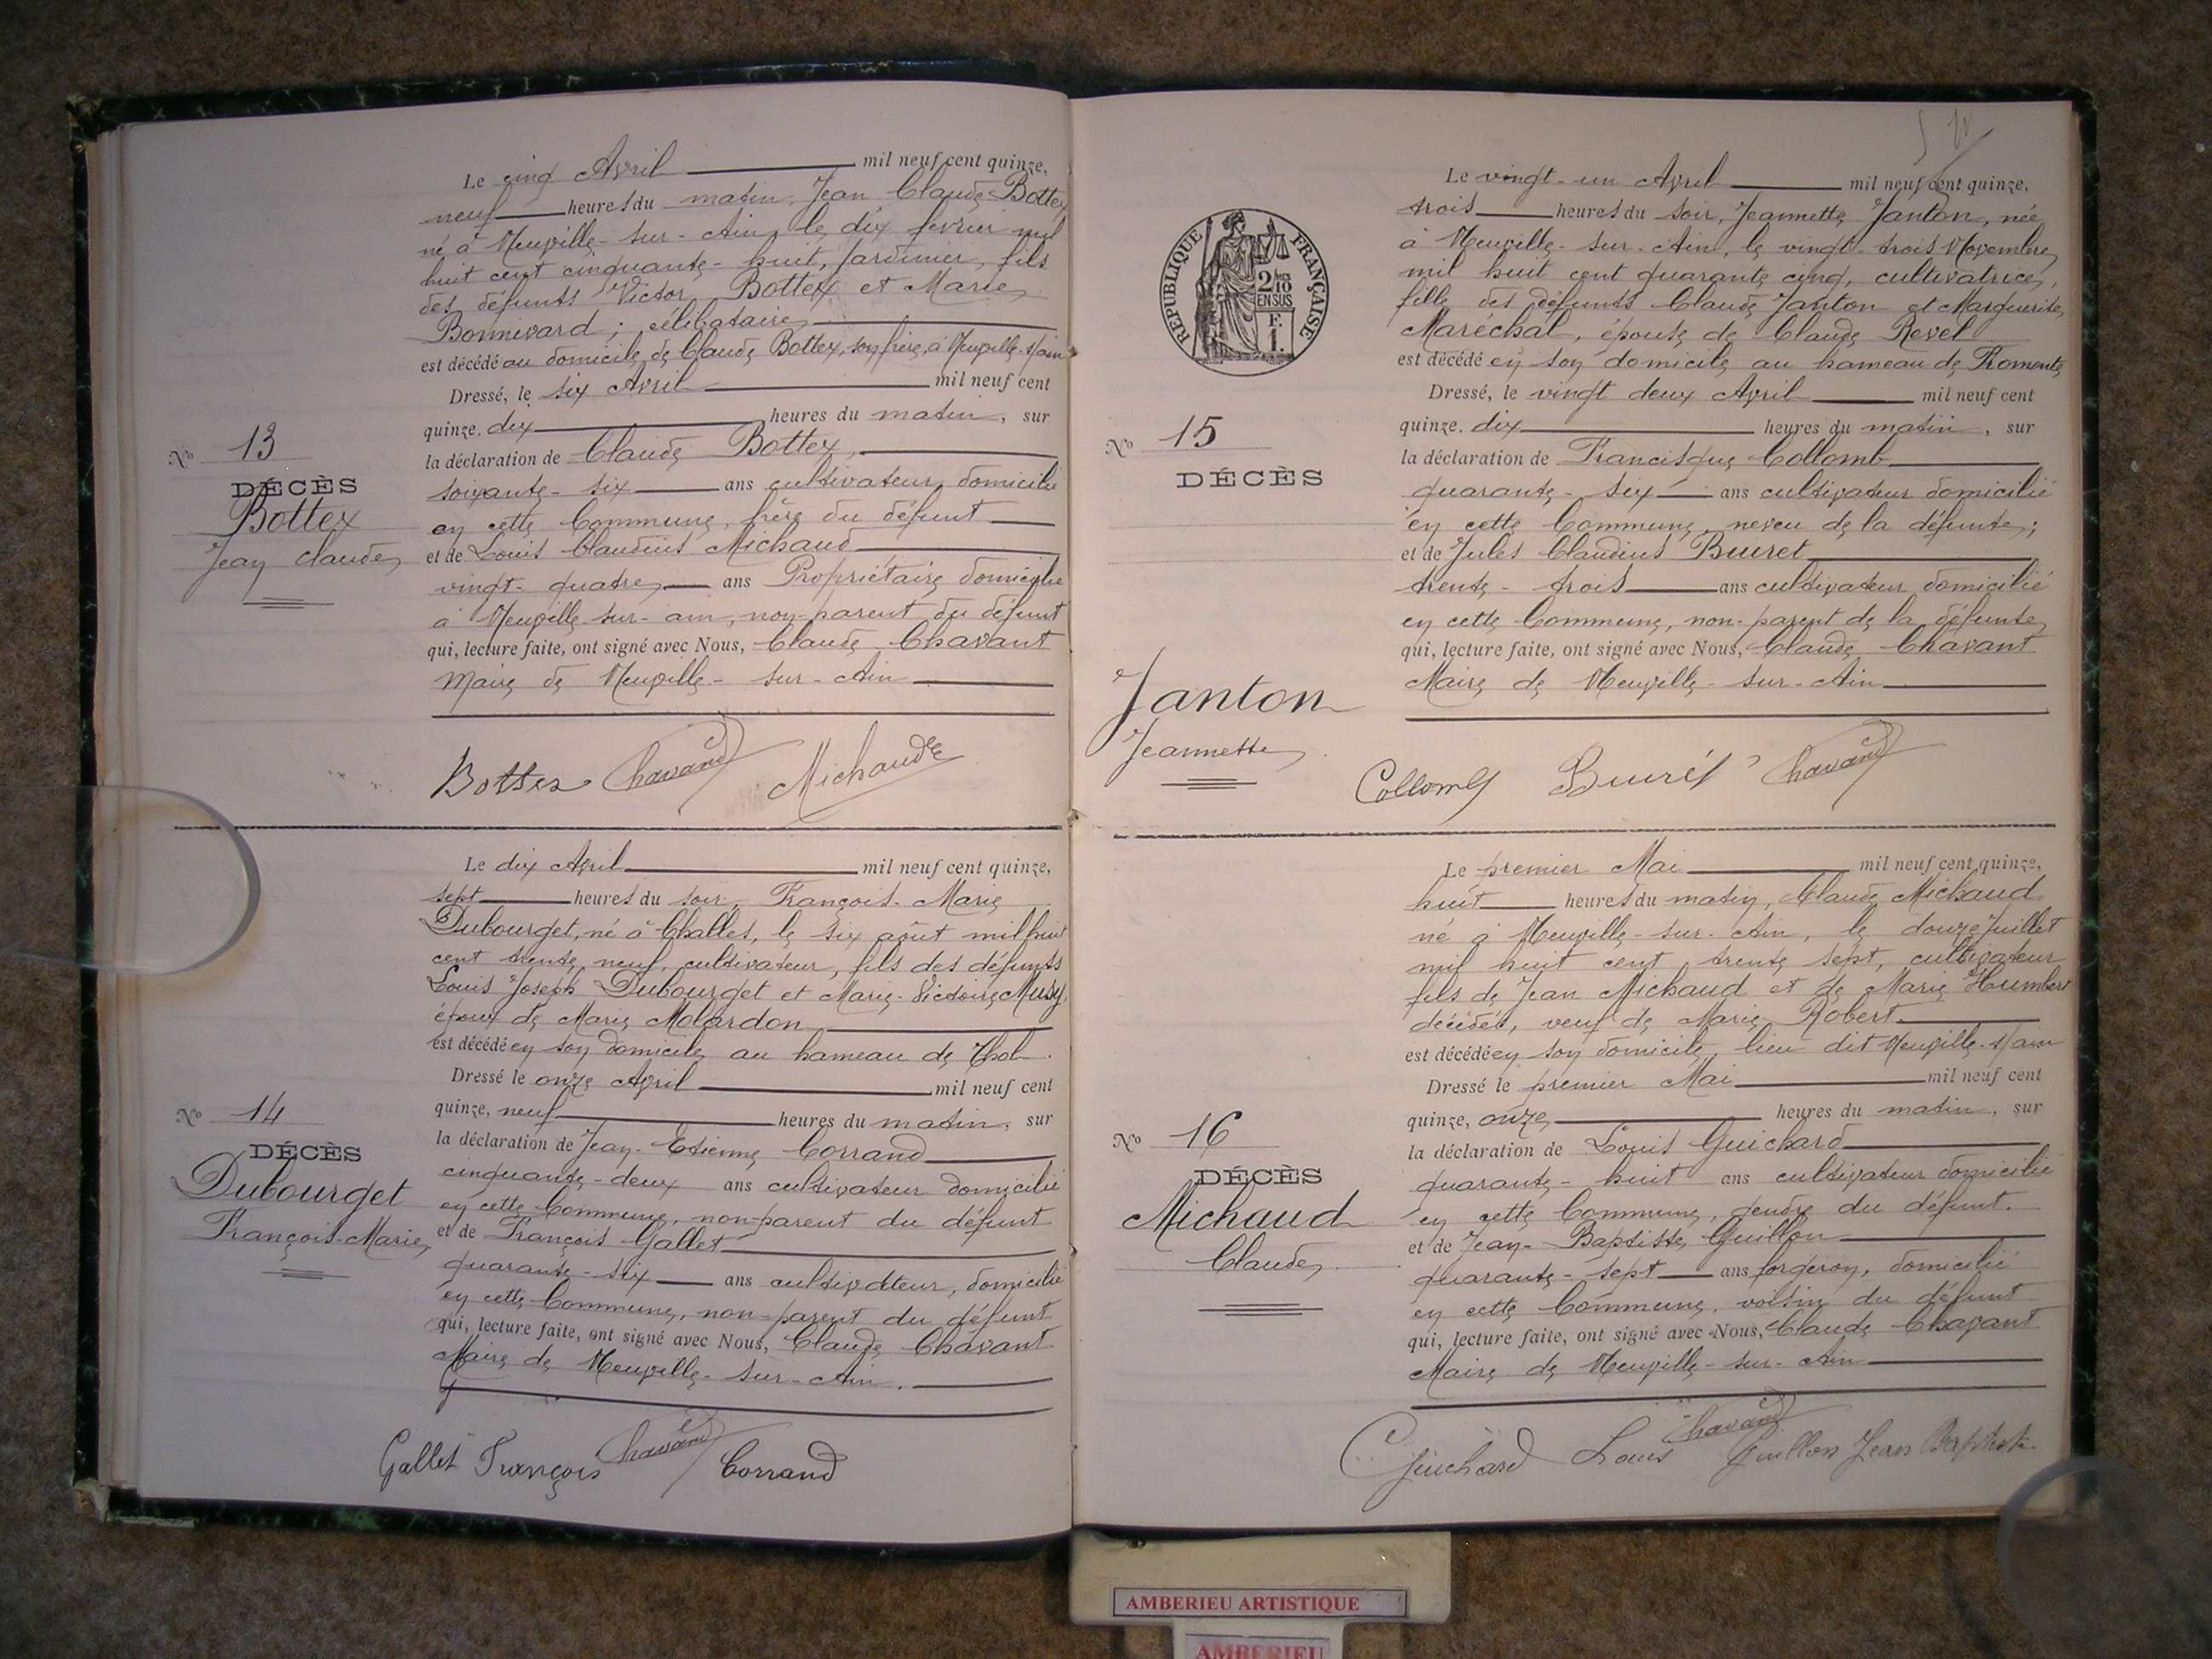 Le cinq Avril mil neuf cent quinze,
neuf heures du matin, Jean Claude Bottex
né à Neuville-sur-Ain, le dix février mil
huit cent cinquante-huit, jardinier, fils
des défunts Victor Bottex et Marie
Bonnivard ; célibataire
est décédé au domicile de Claude Bottex, son frère, à Neuville-s/ain
Dressé, le six Avril mil neuf cent
quinze. dix heures du matin, sur
la déclaration de Claude Bottex,
soixante-six ans cultivateur, domicilié
en cette Commune, frère du défunt
et de Louis Claudius Michaud
vingt-quatre ans Propriétaire domicilié
à Neuville-sur-ain, non-parent du défunt
qui, lecture faite, ont signé avec Nous, Claude Chavant
Maire de Neuville-sur-Ain
No 13
DÉCÈS
Bottex
Jean Claude
Bottex Chavant Michaud
Le dix Avril mil neuf cent quinze,
sept heures du soir, François-Marie
Dubourget, né à Challes, le six août mil huit
cent trente neuf, cultivateur, fils des défunts
Louis Joseph Dubourget et Marie-Victoire Musy,
époux de Marie Molardon
est décédé en son domicile au hameau de Thol.
Dressé le onze Avril mil neuf cent
quinze, neuf heures du matin, sur
la déclaration de Jean-Etienne Corrand
cinquante-deux ans cultivateur domicilié
en cette Commune, non-parent du défunt
et de François Gallet
quarante-six ans cultivateur, domicilié
en cette Commune, non-parent du défunt
qui, lecture faite, ont signé avec Nous, Claude Chavant
Maire de Neuville-sur-Ain.
No 14
DÉCÈS
Dubourget
François-Marie
Gallet François Chavant Corrand
Le vingt-un Avril mil neuf cent quinze,
trois heures du soir, Jeannette Janton, née
à Neuville-sur-Ain, le vingt-trois Novembre
mil huit cent quarante cinq, cultivatrice,
fille des défunts Claude Janton et Marguerite
Maréchal, épouse de Claude Revel
est décédé en son domicile au hameau de Romente
Dressé, le vingt deux Avril mil neuf cent
quinze. dix heures du matin, sur
la déclaration de Francisque Collomb
quarante-six ans cultivateur domicilié
en cette Commune, neveu de la défunte;
et de Jules Claudius Buiret
trente-trois ans cultivateur domicilié
en cette Commune, non-parent de la défunte
qui, lecture faite, ont signé avec Nous, Claude Chavant
Maire de Neuville-sur-Ain
RÉPUBLIQUE FRANÇAISE
2/10
EN SUS
F.
1.
No 15
DÉCÈS
Janton
Jeannette
Collomb Buiret Chavant
Le premier Mai mil neuf cent quinze,
huit heures du matin, Claude Michaud
né à Neuville-sur-Ain, le douze Juillet
mil huit cent trente sept, cultivateur
fils de Jean Michaud et de Marie Humbert
décédés, veuf de Marie Robert
est décédé en son domicile, lieu dit Neuville-s/ain
Dressé le premier Mai mil neuf cent
quinze, onze heures du matin, sur
la déclaration de Louis Guichard
quarante-huit ans cultivateur domicilié
en cette Commune, gendre du défunt.
et de Jean-Baptiste Guillon
quarante-sept ans forgeron, domicilié
en cette Commune, voisin du défunt
qui, lecture faite, ont signé avec Nous, Claude Chavant
Maire de Neuville-sur-Ain
No 16
DÉCÈS
Michaud
Claude
Guichard Louis Chavant Guillon Jean Baptiste
AMBERIEU ARTISTIQUE
AMBERIEU